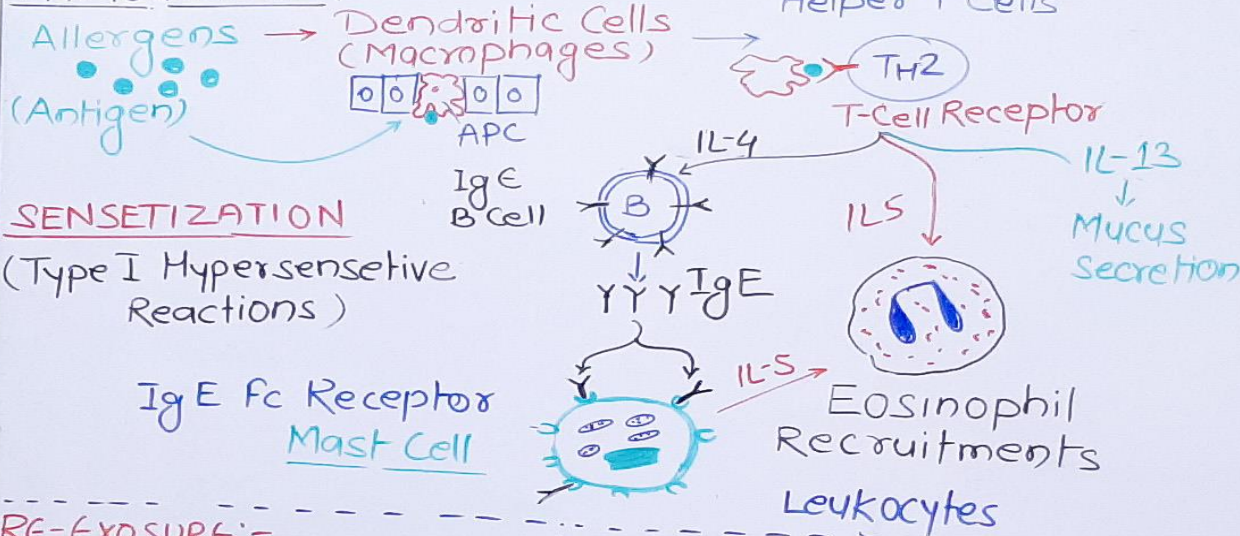 Helper T Cells
Allergens → Dendritic Cells
(Macrophages)
(Antigen)
APC
TH2
T-Cell Receptor
IL-4
IL5
IL-13
↓
Mucus
Secretion
IgE
B Cell
B
SENSETIZATION
(Type I Hypersensetive
Reactions)
IgE
IgE Fc Receptor
Mast Cell
IL-5
Eosinophil
Recruitments
Leukocytes
RE-EXOSURE:-